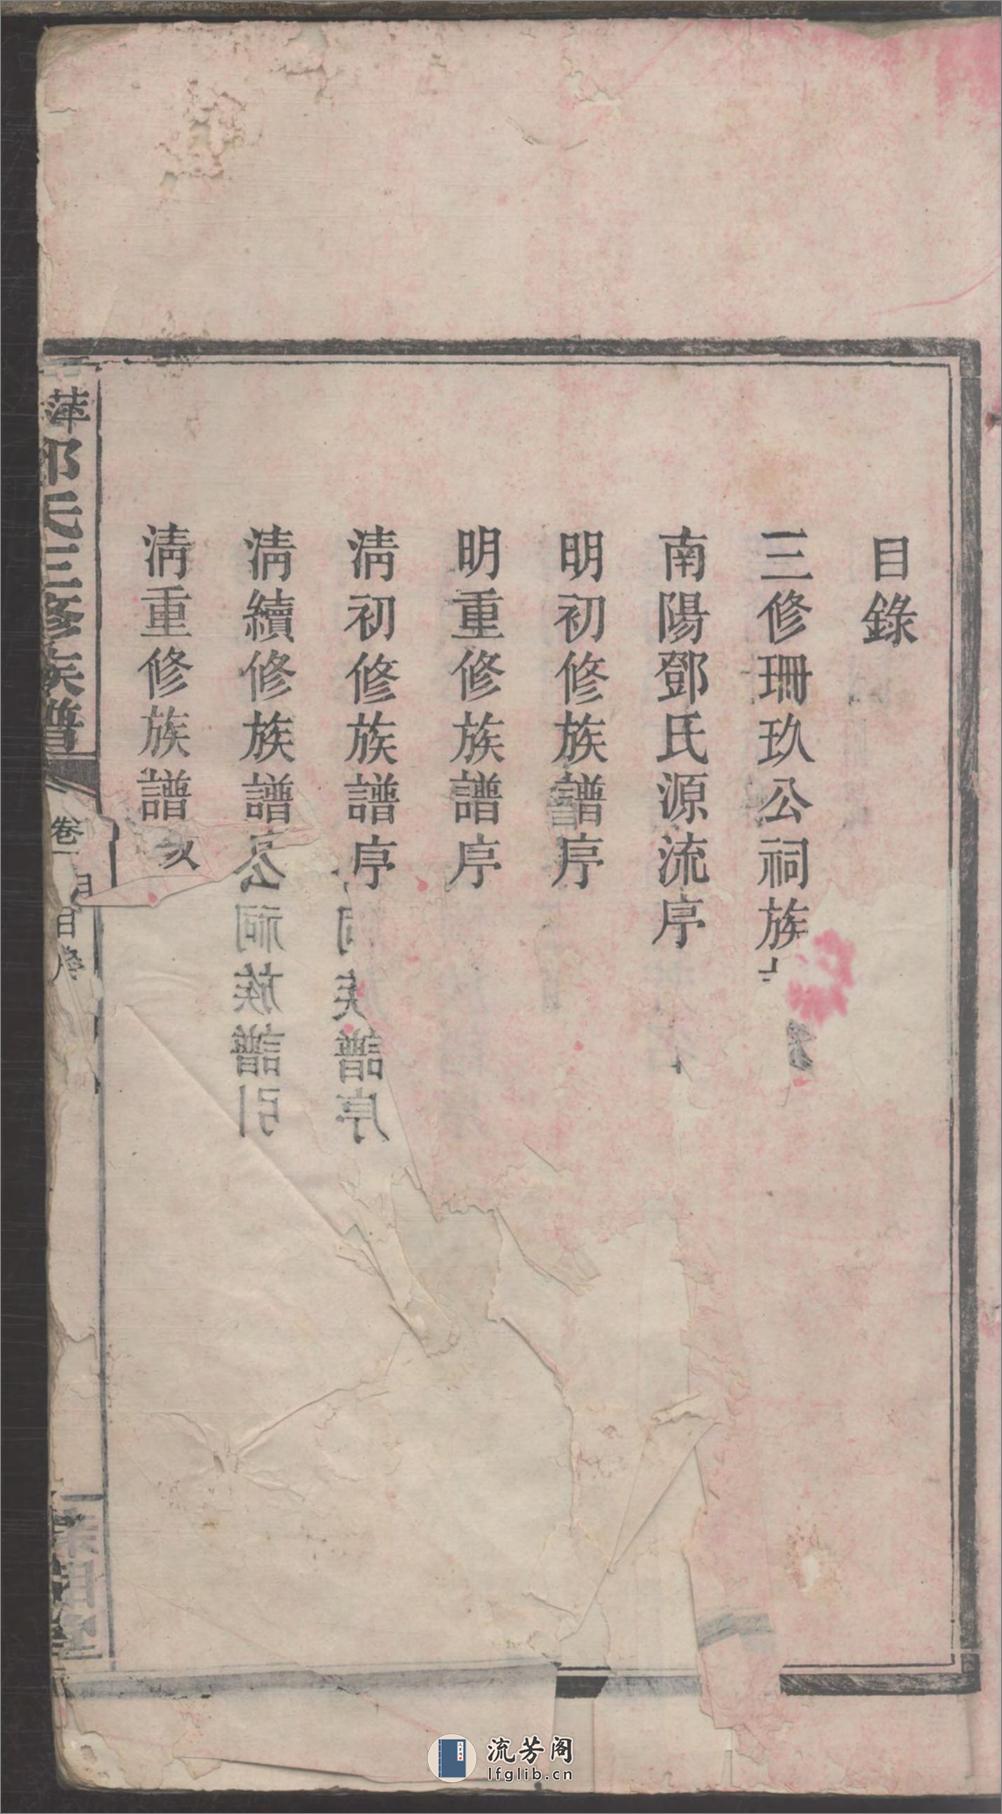 目錄
三修珊玖公祠族
南陽鄧氏源流序
明初修族譜序
明重修族譜序
清初修族譜序
清續修族譜序
清重修族譜
公祠族譜引
祠族譜序
萍鄧氏三修族譜
卷
目錄
流芳阁
lfglib.cn